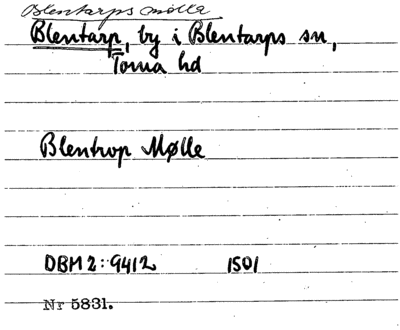 Blentarps mølla
Blentarp, by i Blentarps sn,
Torna hd
Blentrop Mølle
DBM2: 9412 1501
Nr 5831.